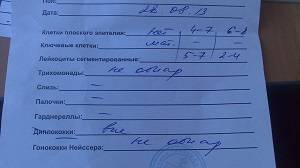 Пол:
Дата: 26 08 13
Клетки плоского эпителия: 4-7 6-8
Ключевые клетки: — —
Лейкоциты сегментированные: 5-7 2-4
Трихомонады: не обнар
Слизь: —
Палочки: —
Гарднереллы: —
Диплококки: вне
Гонококки Нейссера: не обнар